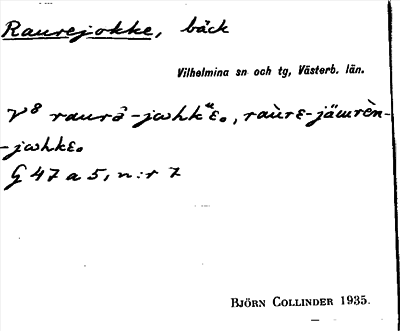 Raurejokke, bäck
Vilhelmina sn och tg, Västerb. län.
V⁸ raurȧ̂-jωhkᵘ̈ɛ., raùrɛ-jäɯrèn-
-jωhkɛ.
G 47 a 5, n:r 7
BJÖRN COLLINDER 1935.